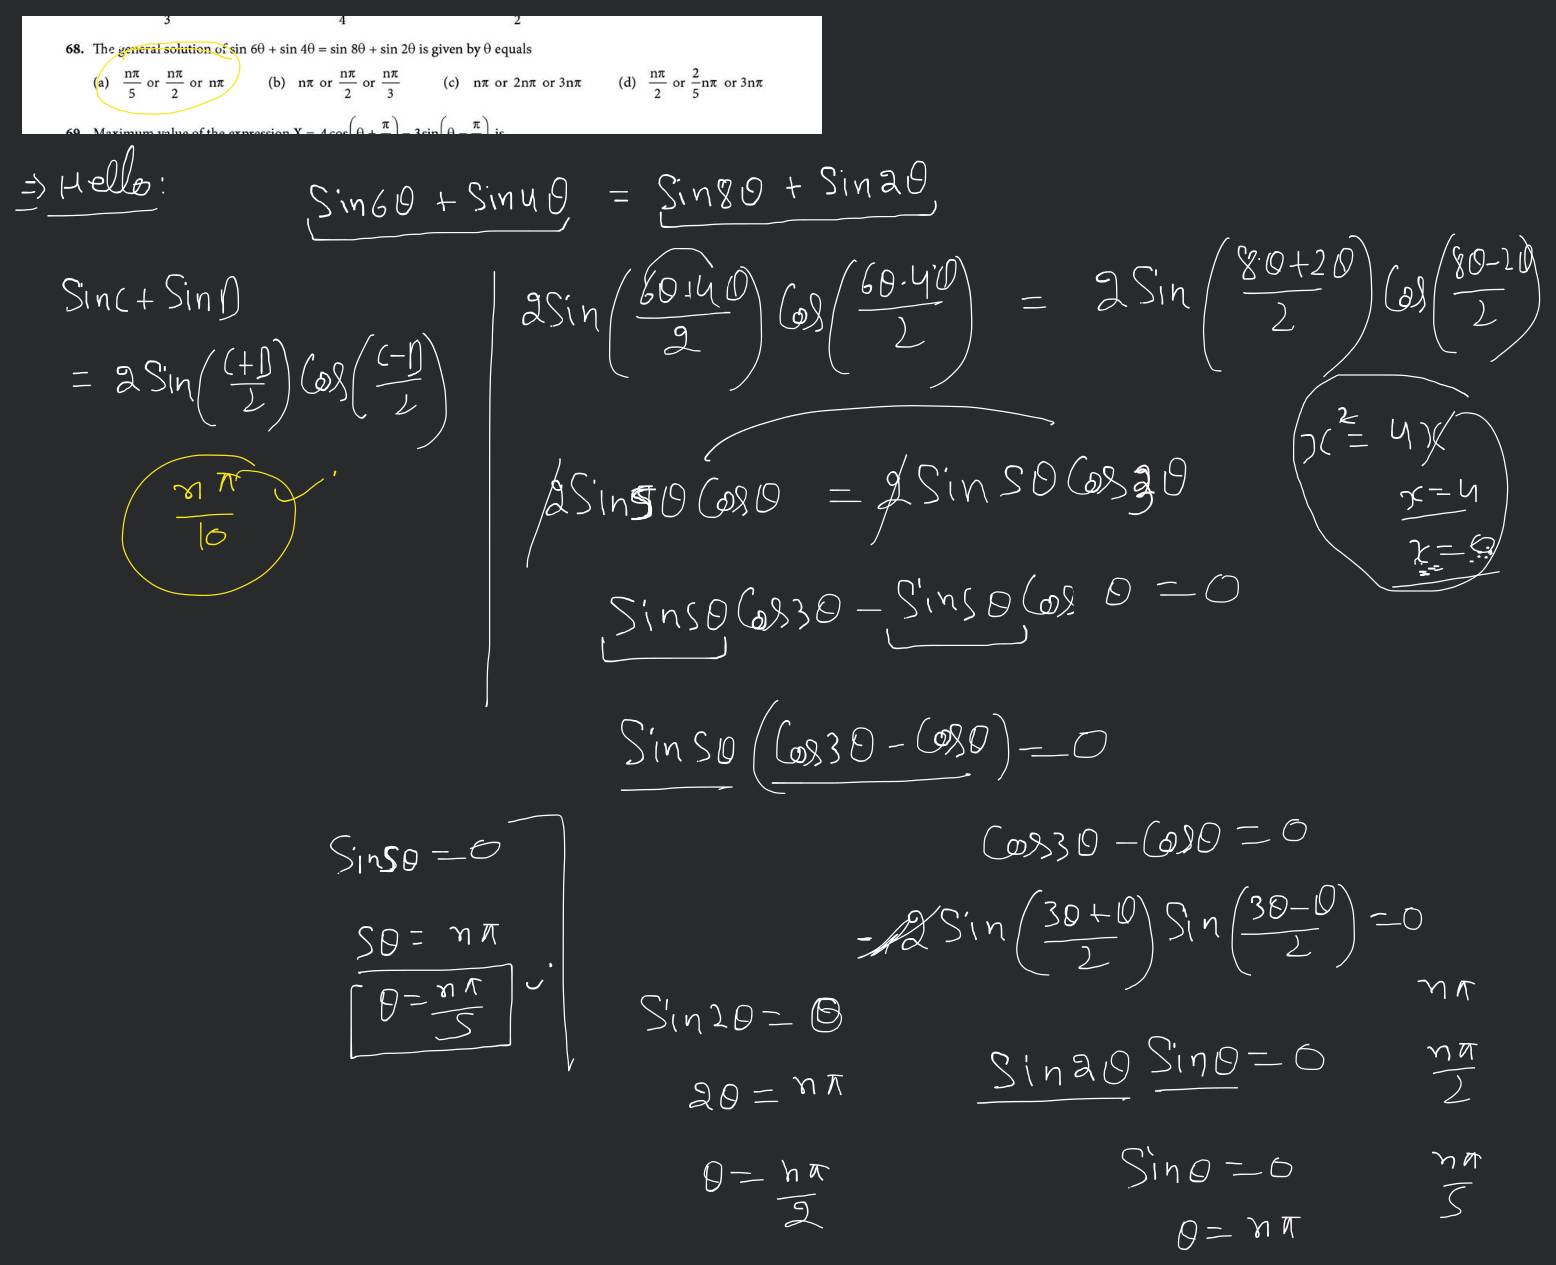 3 4 2
68. The general solution of sin 6θ + sin 4θ = sin 8θ + sin 2θ is given by θ equals
(a) nπ/5 or nπ/2 or nπ (b) nπ or nπ/2 or nπ/3 (c) nπ or 2nπ or 3nπ (d) nπ/2 or 2/5 nπ or 3nπ
69. Maximum value of the expression X = 4cos(θ + π) − 3sin(θ − π) is
⇒ Hello:
Sin6θ + Sin4θ = Sin8θ + Sin2θ
SinC + SinD
= 2Sin((C+D)/2) Cos((C−D)/2)
nπ/10
2Sin((6θ+4θ)/2) Cos((6θ-4θ)/2) = 2Sin((8θ+2θ)/2) Cos((8θ-2θ)/2)
2Sin5θ Cosθ = 2Sin5θ Cos3θ
x² = 4x
x = 4
x = 0
Sin5θ Cos3θ − Sin5θ Cosθ = 0
Sin5θ (Cos3θ − Cosθ) = 0
Sin5θ = 0
5θ = nπ
θ = nπ/5
Cos3θ − Cosθ = 0
-2Sin((3θ+θ)/2) Sin((3θ−θ)/2) = 0
Sin2θ Sinθ = 0
Sin2θ = 0
2θ = nπ
θ = nπ/2
Sinθ = 0
θ = nπ
nπ
nπ/2
nπ/5